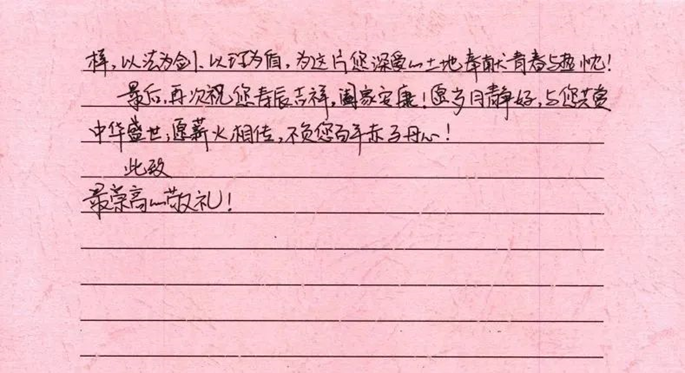 样，以法为剑、以行为盾，为这片您深爱的土地奉献青春与热忱！
最后，再次祝您寿辰吉祥，阖家安康！愿岁月静好，与您共赏
中华盛世，愿薪火相传，不负您百年赤子丹心！
此致
最荣高的敬礼！